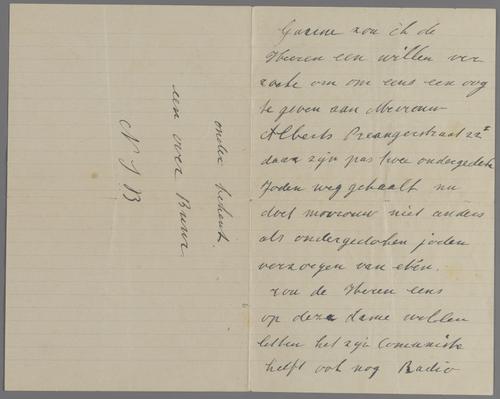 Garne zou ik de
Heeren een willen ver
zoeke om om eens een oog
te geven aan Mevrouw
Alberts Preangerstraat 22²
daar zijn pas twee ondergedoke
Joden weg gehaalt nu
doet mevrouw niet anders
als ondergedoken joden
verzorgen van eten.
zou de Heeren eens
op deze dame willen
letten het zijn Comuniste
helft ook nog Radio
onder bekent
een over Buur
N S B